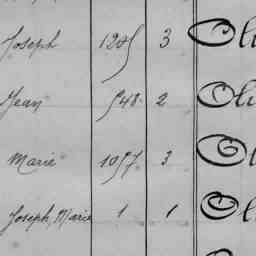 Joseph 1285 3 Oli
Jean 548 2 Oli
Marie 1057 3 Oli
Joseph, Marie 1 1 Oli